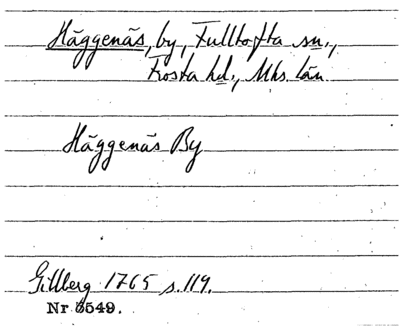 Häggenäs, by, Fulltofta sn.,
Frosta hd., Mhs. län
Häggenäs By
Gillberg 1765 s. 119.
Nr 3549.